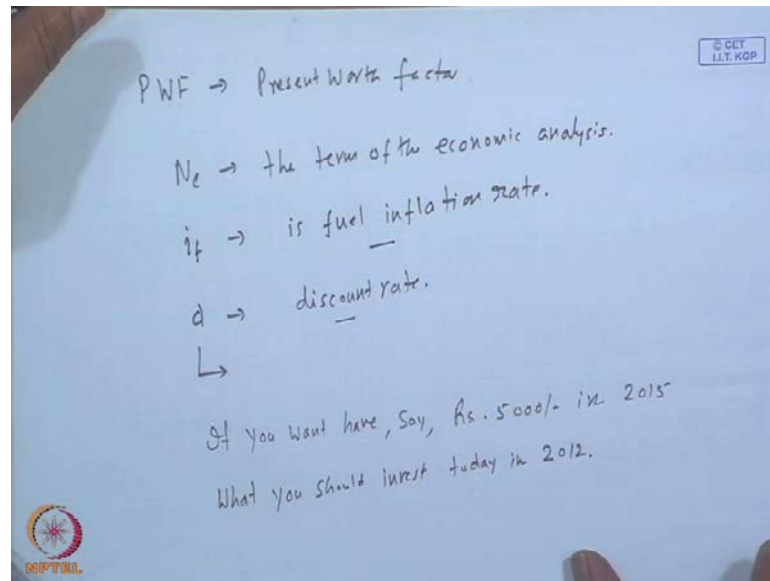 © CET
I.I.T. KGP
PWF → Present Worth factor
Ne → the term of the economic analysis.
if → is fuel inflation rate.
d → discount rate.
If you want have, Say, Rs. 5000/- in 2015
What you should invest today in 2012.
NPTEL